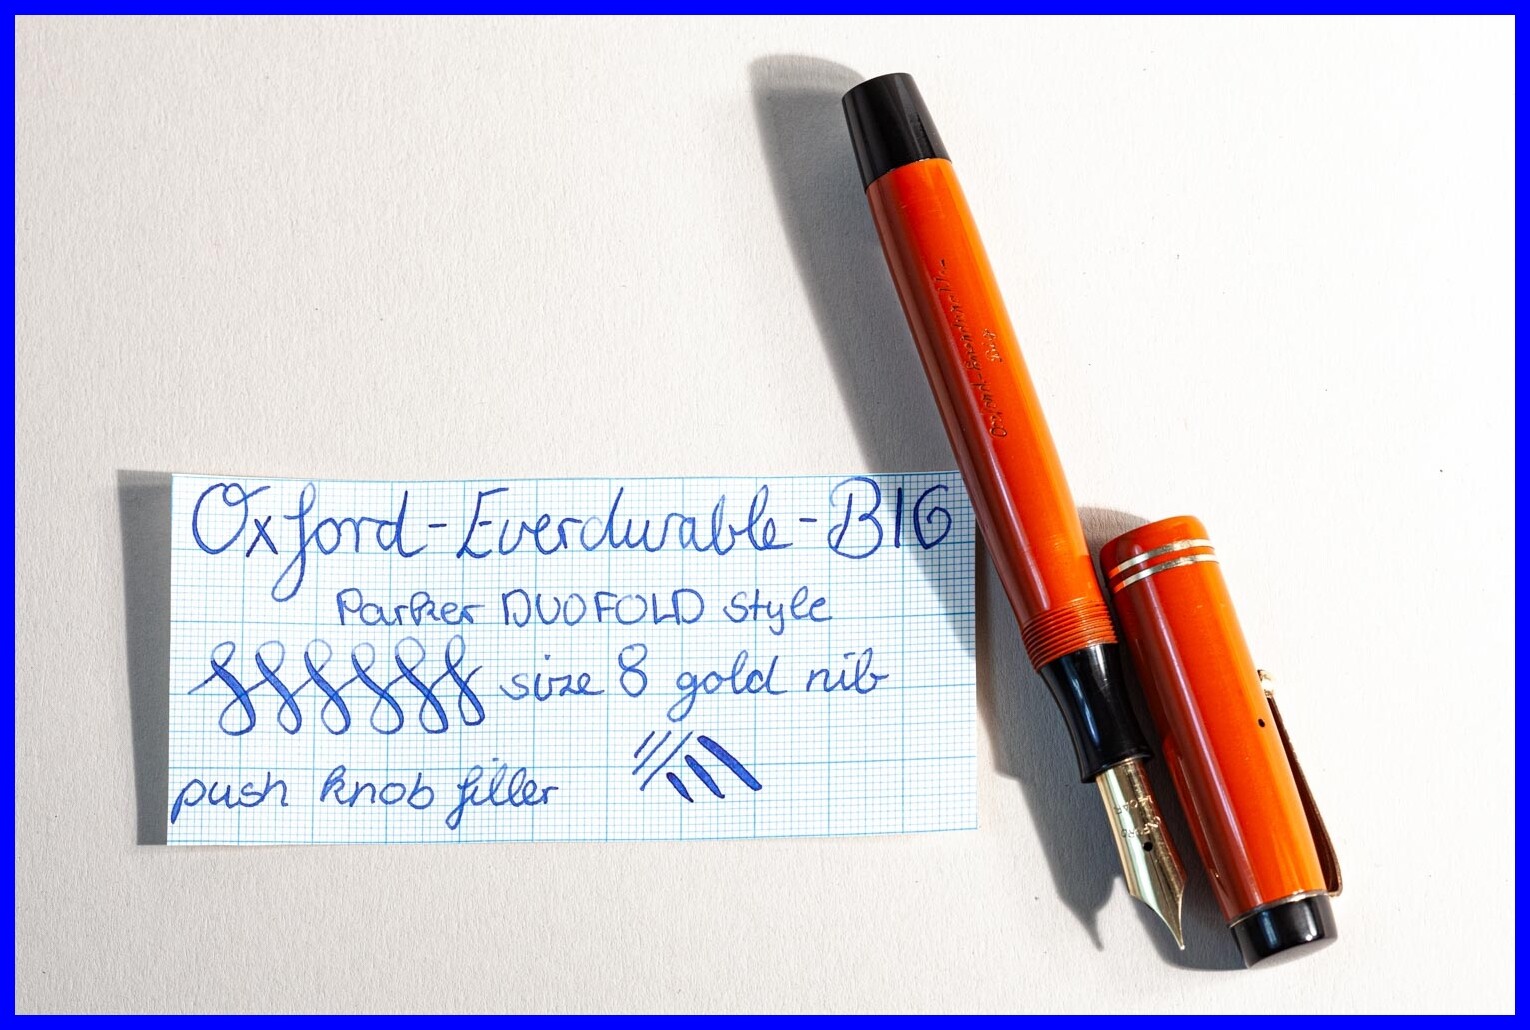 Oxford-Everdurable-BIG
Parker DUOFOLD style
size 8 gold nib
push knob filler